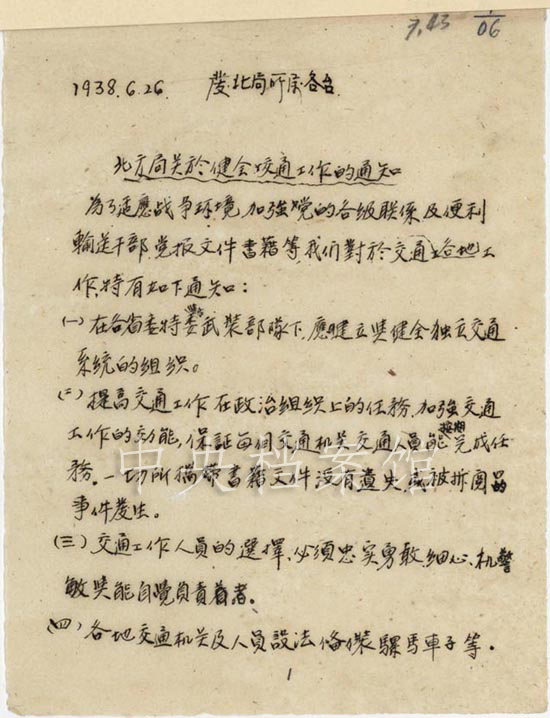 7.43 1/06
1938.6.26. 发北局所属各台.
北方局关於健全交通工作的通知
為了适應战争环境,加強党的各级联係及便利
輸送干部党报文件書籍等,我们對於交通各地工
作,特有如下通知:
(一)在各省委特委武装部隊下,應建立与健全独立交通
系统的组织。
(二)提高交通工作在政治组织上的任務,加強交通
工作的功能,保証每個交通机关交通員能按期完成任
務.一切所攜带書籍文件没有遺失或被拆閱的
事件发生。
(三)交通工作人員的選擇,必须忠实勇敢,細心,机警
敏与能自覺負責着者。
(四)各地交通机关及人员設法备装騾馬車子等.
1
中央档案馆